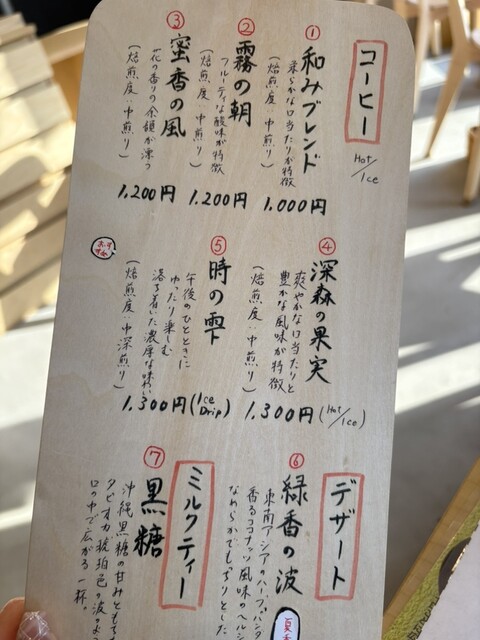 コーヒー
Hot/Ice
①
和みブレンド
柔らかな口当たりが特徴
(焙煎度:中煎り)
1,000円
②
霧の朝
フルーティな酸味が特徴
(焙煎度:中煎り)
1,200円
③
蜜香の風
花の香りの余韻が漂う
(焙煎度:中煎り)
1,200円
④
深森の果実
爽やかな口当たりと
豊かな風味が特徴
(焙煎度:中煎り)
1,300円(Hot/Ice)
⑤
おすすめ
時の雫
午後のひとときに
ゆったり楽しむ
落ち着いた濃厚な味わい
(焙煎度:中深煎り)
1,300円(Ice Drip)
デザート
⑥
緑香の波
東南アジアのハーブ、パンダ
香るココナッツ風味のヘルシ
なめらかでもっちりとした
ミルクティー
⑦
黒糖
沖縄黒糖の甘みともち
タピオカ琥珀色の波のよう
口の中で広がる一杯。